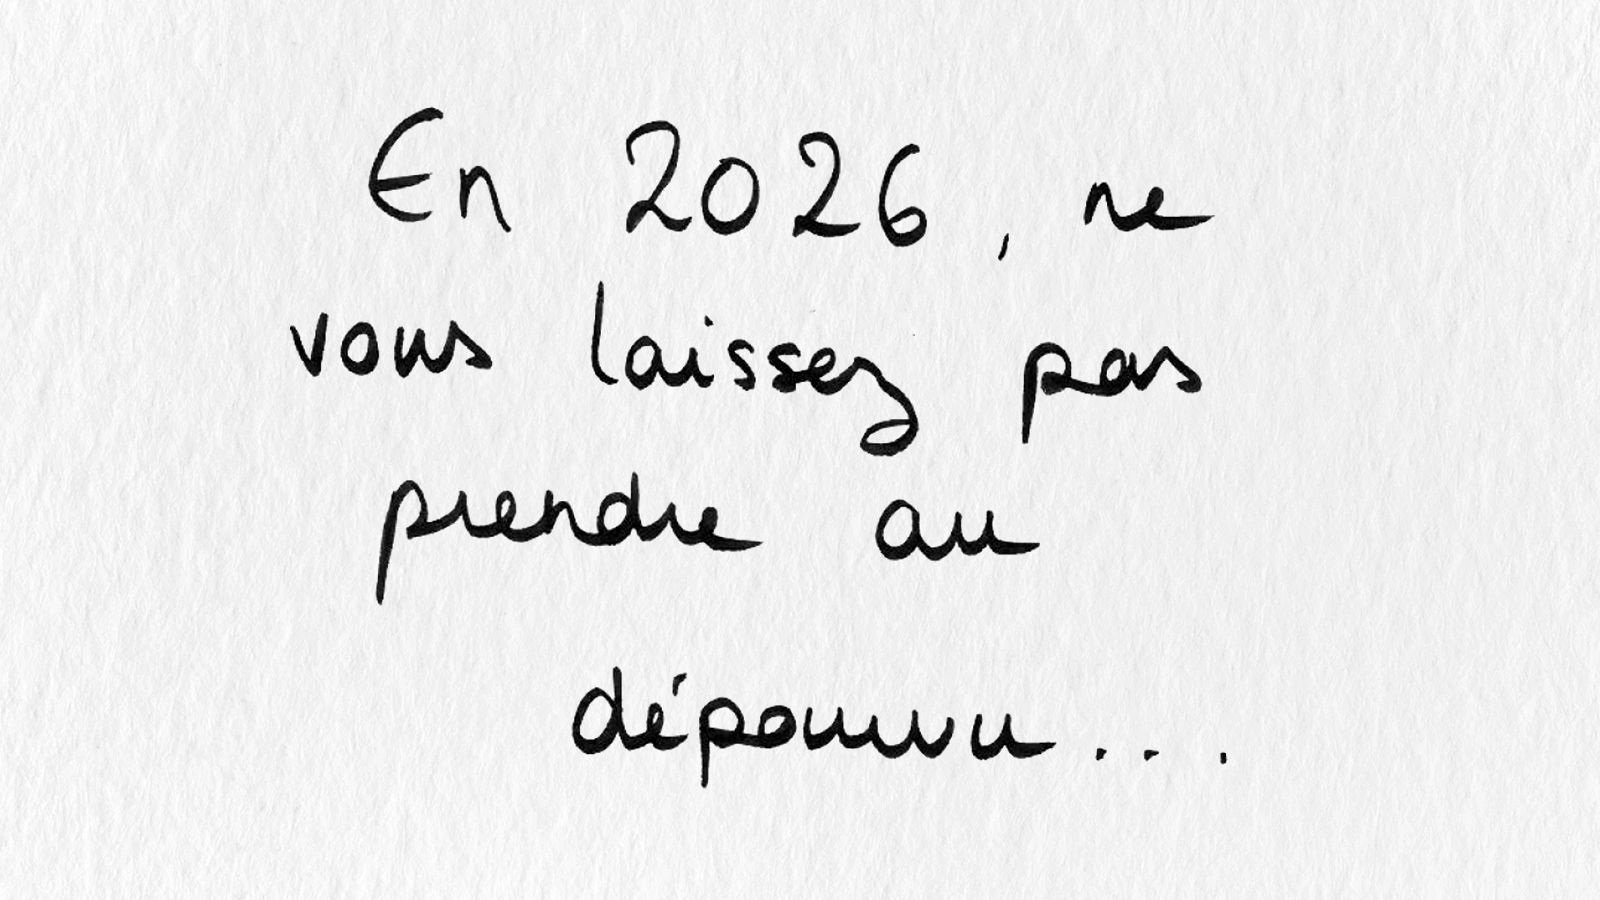 En 2026, ne
vous laissez pas
prendre au
dépourvu...